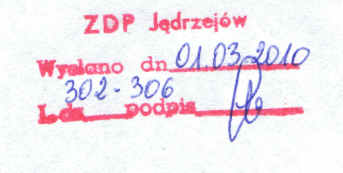 ZDP Jędrzejów
Wysłano dn. 01.03.2010
302-306
L.dz. podpis